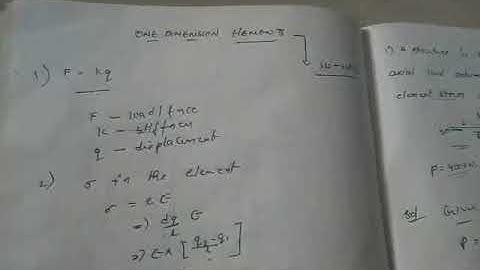 ONE DIMENSION ELEMENTS
1) F = kq
F — load / force
k — stiffness
q — displacement
2) σ in the element
σ = e E
=) dq/l E
=) E × [q2 - q1 / l]
1) a structure is
axial load
element stress
Sol Given
P =